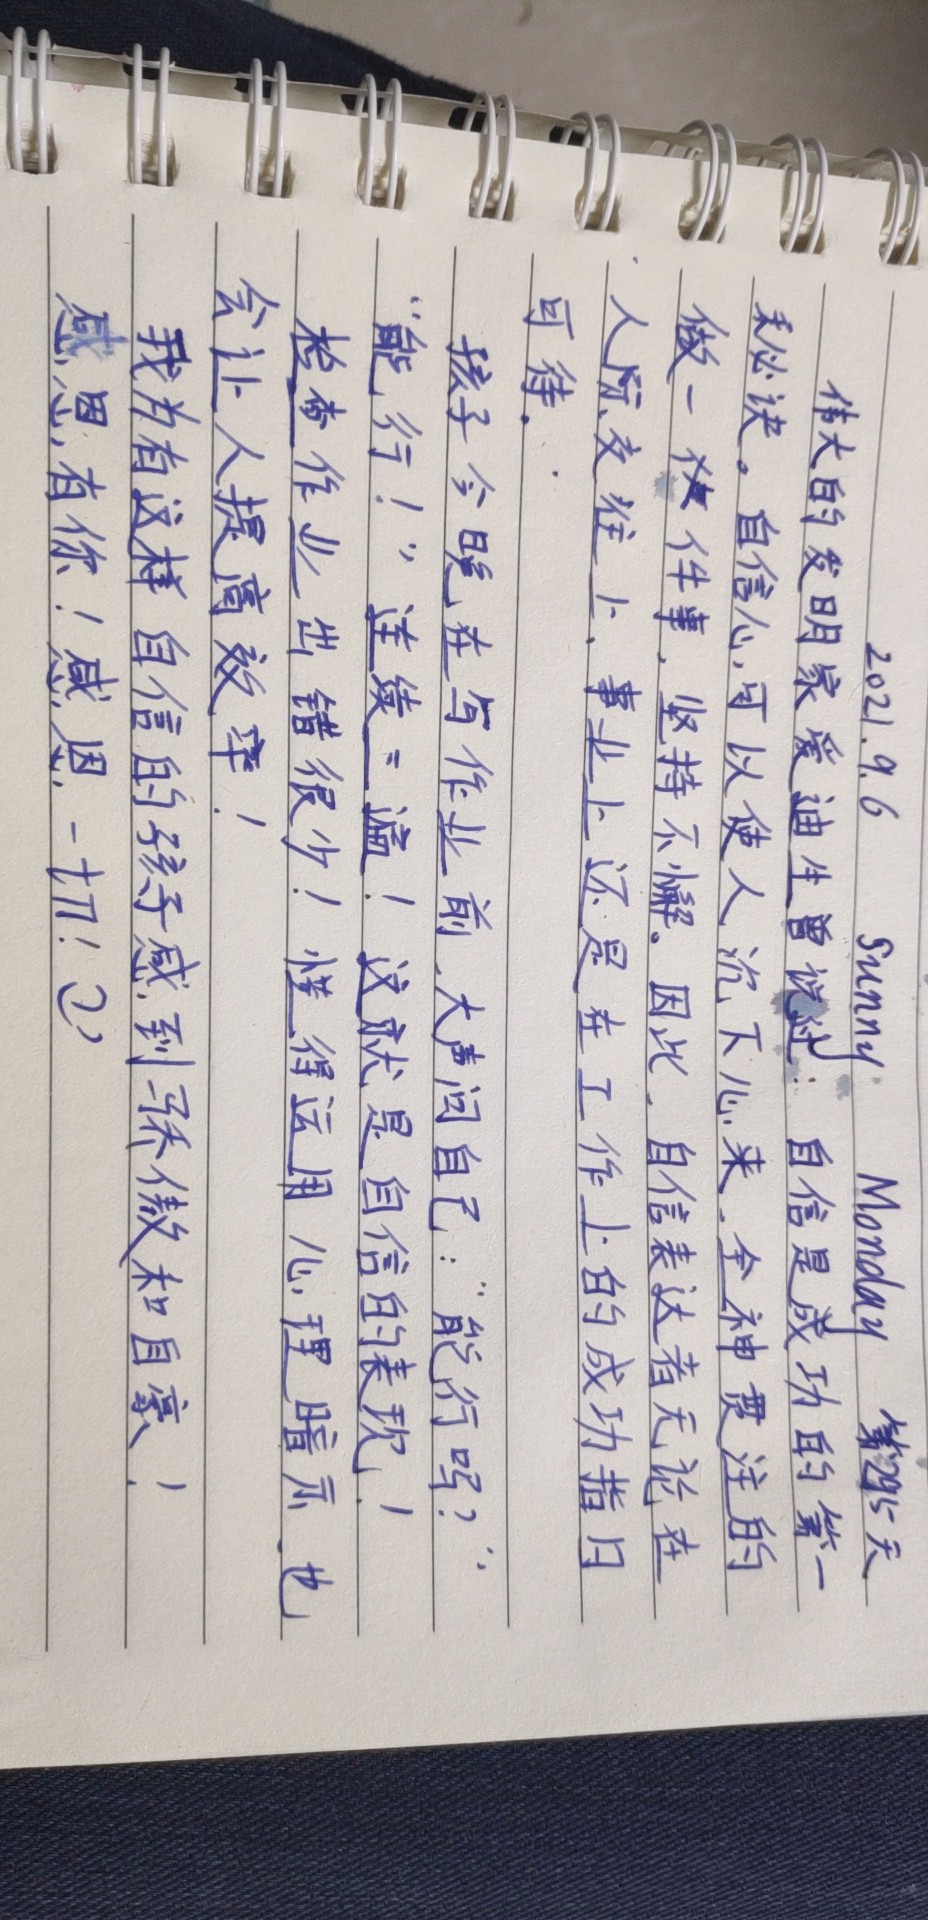 2021.9.6 Sunny Monday 第295天
伟大的发明家爱迪生曾说过：自信是成功的第一
秘诀。自信心可以使人沉下心来，全神贯注的
做一件事，坚持不懈。因此，自信表达着无论在
人际交往上、事业上还是在工作上的成功指日
可待。
孩子今晚在写作业前，大声问自己：“能行吗？”
“能行！”连续二遍！这就是自信的表现！
检查作业出错很少！懂得运用心理暗示，也
会让人提高效率！
我为有这样自信的孩子感到骄傲和自豪！
感恩有你！感恩一切！